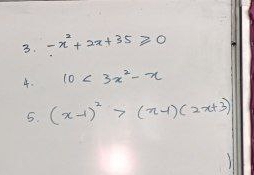 3. -x² + 2x + 35 ⩾ 0
4. 10 < 3x² - x
5. (x-1)² > (x-1)(2x+3)